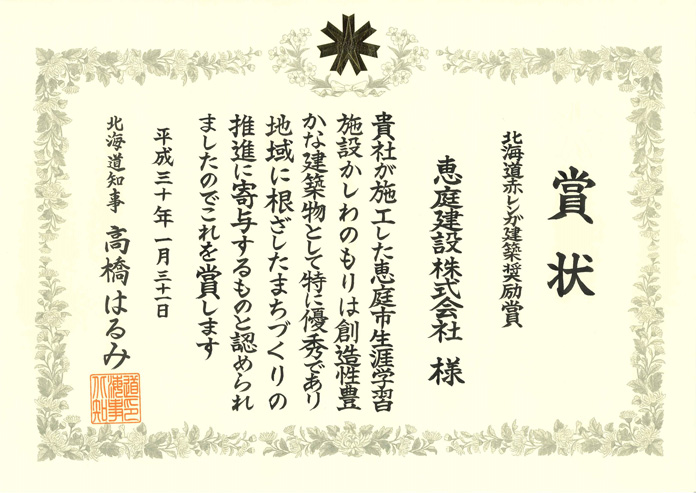 賞状
北海道赤レンガ建築奨励賞
恵庭建設株式会社 様
貴社が施工した恵庭市生涯学習
施設かしわのもりは創造性豊
かな建築物として特に優秀であり
地域に根ざしたまちづくりの
推進に寄与するものと認められ
ましたのでこれを賞します
平成三十年一月三十一日
北海道知事 高橋はるみ